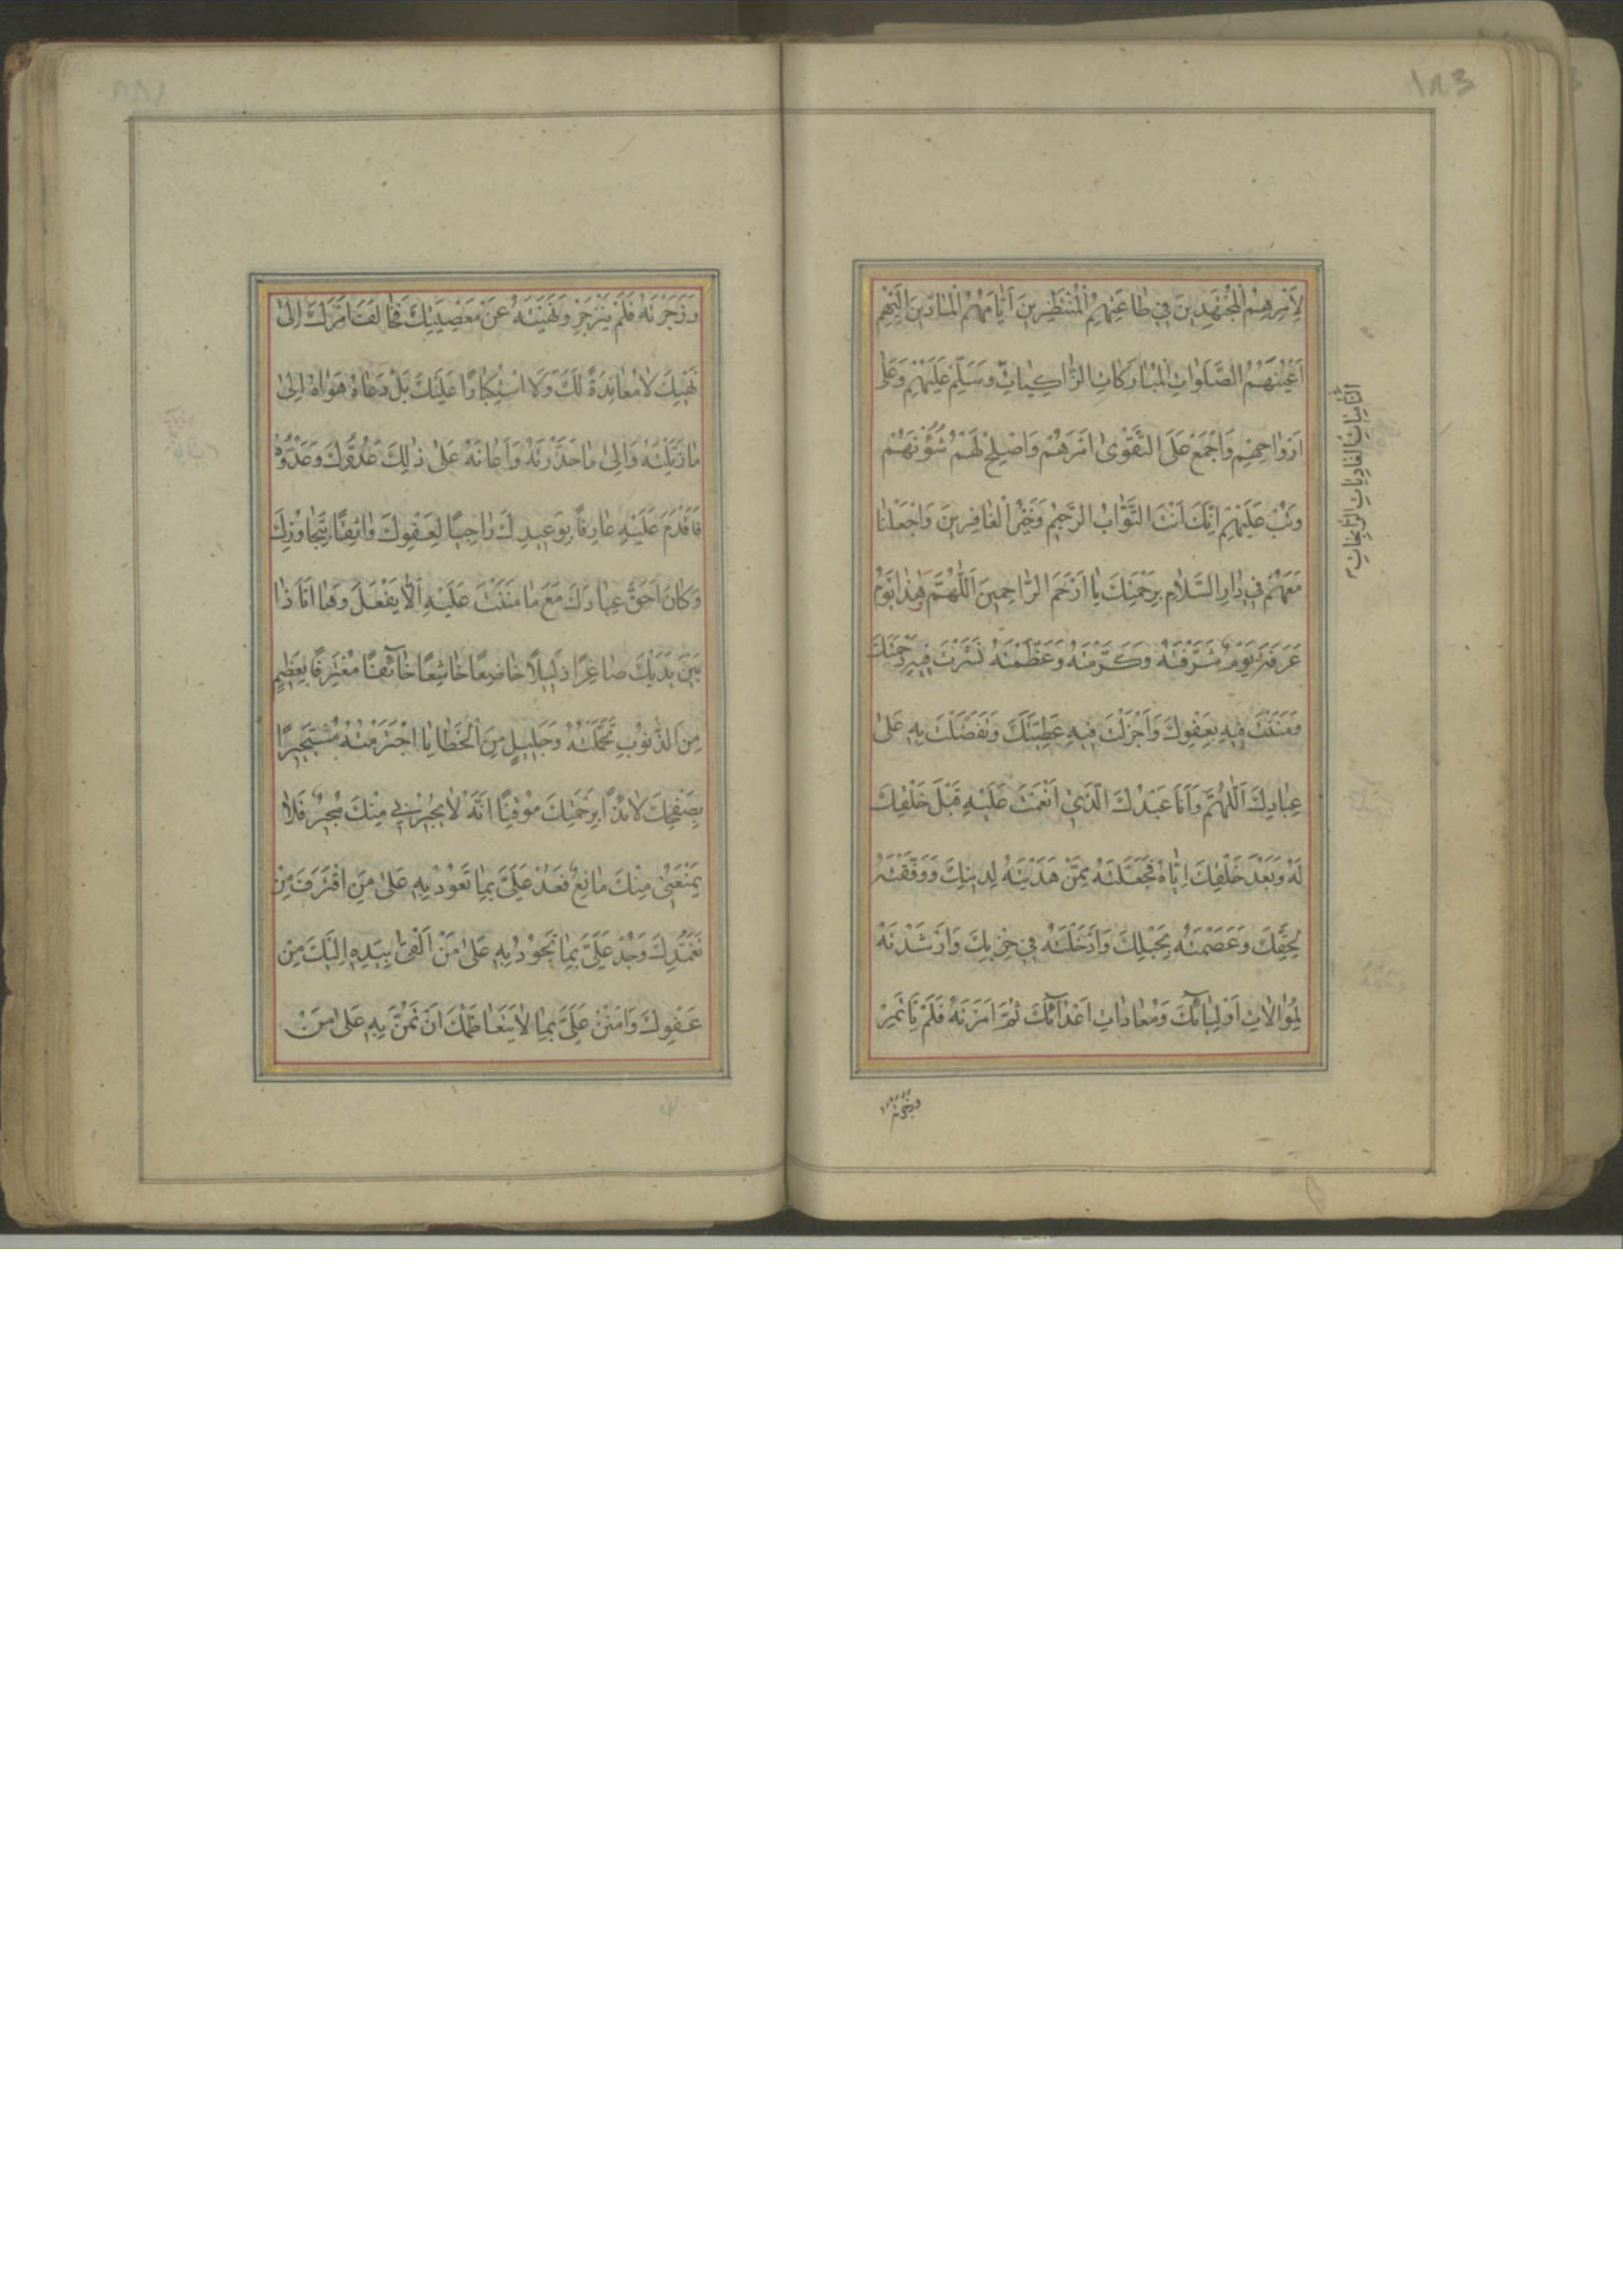 لِأَمْرِهِمُ الْمُجْتَهِدِينَ فِي طَاعَتِهِمُ الْمُنْتَظِرِينَ أَيَّامَهُمُ الْمَادِّينَ إِلَيْهِمْ
أَعْيُنَهُمُ الصَّلَوَاتِ الْمُبَارَكَاتِ الزَّاكِيَاتِ وَسَلِّمْ عَلَيْهِمْ وَعَلَى
أَرْوَاحِهِمْ وَاجْمَعْ عَلَى التَّقْوَى أَمْرَهُمْ وَأَصْلِحْ لَهُمْ شُؤُنَهُمْ
وَتُبْ عَلَيْهِمْ إِنَّكَ أَنْتَ التَّوَّابُ الرَّحِيمُ وَخَيْرُ الْغَافِرِينَ وَاجْعَلْنَا
مَعَهُمْ فِي دَارِ السَّلَامِ بِرَحْمَتِكَ يَا أَرْحَمَ الرَّاحِمِينَ اَللَّهُمَّ هَذَا يَوْمُ
عَرَفَةَ يَوْمٌ شَرَّفْتَهُ وَكَرَّمْتَهُ وَعَظَّمْتَهُ نَشَرْتَ فِيهِ رَحْمَتَكَ
وَمَنَنْتَ فِيهِ بِعَفْوِكَ وَأَجْزَلْتَ فِيهِ عَطِيَّتَكَ وَتَفَضَّلْتَ بِهِ عَلَى
عِبَادِكَ اَللَّهُمَّ وَأَنَا عَبْدُكَ الَّذِي أَنْعَمْتَ عَلَيْهِ قَبْلَ خَلْقِكَ
لَهُ وَبَعْدَ خَلْقِكَ إِيَّاهُ فَجَعَلْتَهُ مِمَّنْ هَدَيْتَهُ لِدِينِكَ وَوَفَّقْتَهُ
لِحَقِّكَ وَعَصَمْتَهُ بِحَبْلِكَ وَأَدْخَلْتَهُ فِي حِزْبِكَ وَأَرْشَدْتَهُ
لِمُوَالَاتِ أَوْلِيَائِكَ وَمُعَادَاتِ أَعْدَائِكَ ثُمَّ أَمَرْتَهُ فَلَمْ يَأْتَمِرْ
النَّامِيَاتِ الْغَادِيَاتِ الرَّائِحَاتِ
وزجرته
١٨٣
وَزَجَرْتَهُ فَلَمْ يَنْزَجِرْ وَنَهَيْتَهُ عَنْ مَعْصِيَتِكَ فَخَالَفَ أَمْرَكَ إِلَى
نَهْيِكَ لَا مُعَانَدَةً لَكَ وَلَا اسْتِكْبَارًا عَلَيْكَ بَلْ دَعَاهُ هَوَاهُ إِلَى
مَا زَيَّلْتَهُ وَإِلَى مَا حَذَّرْتَهُ وَأَعَانَهُ عَلَى ذَلِكَ عَدُوُّكَ وَعَدُوُّهُ
فَأَقْدَمَ عَلَيْهِ عَارِفًا بِوَعِيدِكَ رَاجِيًا لِعَفْوِكَ وَاثِقًا بِتَجَاوُزِكَ
وَكَانَ أَحَقَّ عِبَادِكَ مَعَ مَا مَنَنْتَ عَلَيْهِ أَلَّا يَفْعَلَ وَهَا أَنَا ذَا
بَيْنَ يَدَيْكَ صَاغِرًا ذَلِيلًا خَاضِعًا خَاشِعًا خَائِفًا مُعْتَرِفًا بِعَظِيمٍ
مِنَ الذُّنُوبِ تَحَمَّلْتُهُ وَجَلِيلٍ مِنَ الْخَطَايَا اجْتَرَمْتُهُ مُسْتَجِيرًا
بِصَفْحِكَ لَائِذًا بِرَحْمَتِكَ مُوقِنًا أَنَّهُ لَا يُجِيرُنِي مِنْكَ مُجِيرٌ فَلَا
يَمْنَعُنِي مِنْكَ مَانِعٌ فَعُدْ عَلَيَّ بِمَا تَعُودُ بِهِ عَلَى مَنِ اقْتَرَفَ مِنْ
تَغَمُّدِكَ وَجُدْ عَلَيَّ بِمَا تَجُودُ بِهِ عَلَى مَنْ أَلْقَى بِيَدِهِ إِلَيْكَ مِنْ
عَفْوِكَ وَامْنُنْ عَلَيَّ بِمَا لَا يَتَعَاظَمُكَ أَنْ تَمُنَّ بِهِ عَلَى مَنْ